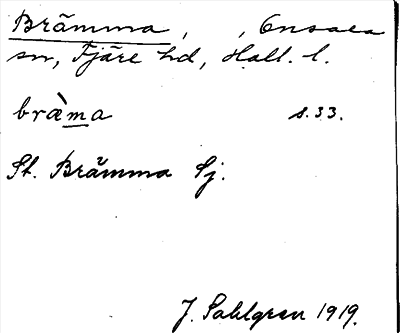 Brämma, , Onsala
sn, Fjäre hd, Hall. l.
bræ̀ma s. 33.
St. Brämma Sj.
J. Sahlgren 1919.